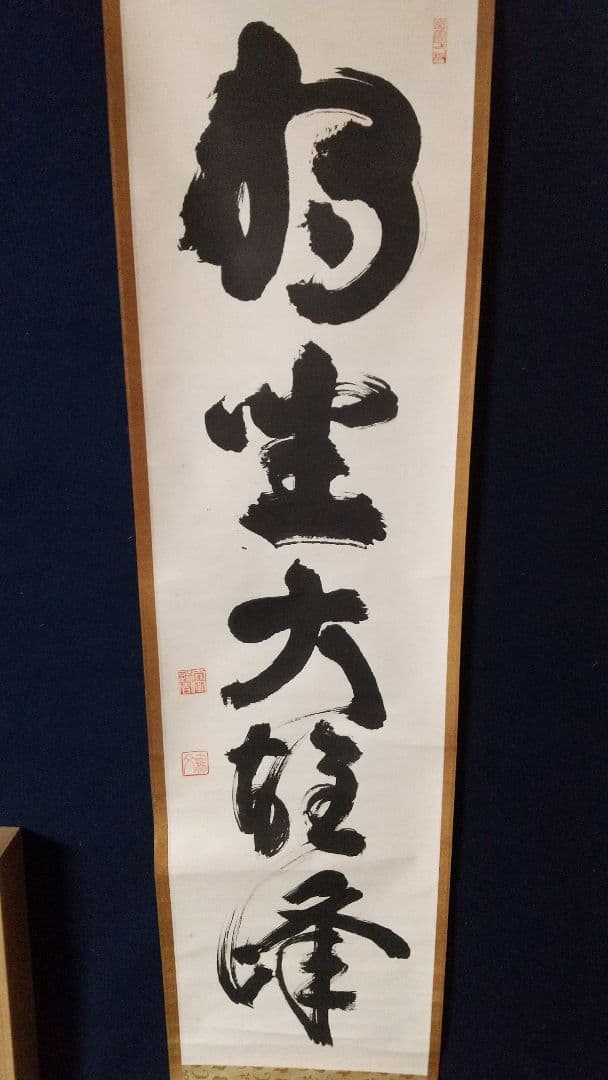 独坐大雄峰